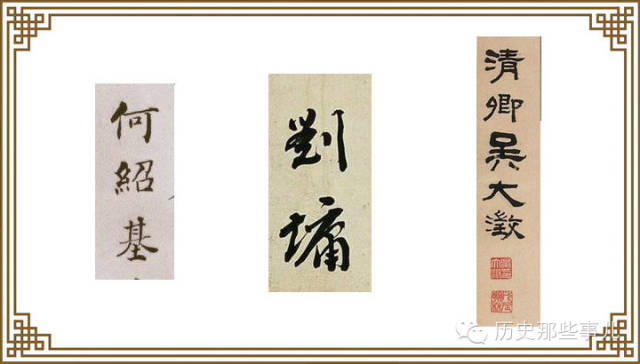 何紹基
劉墉
清卿吳大澂
历史那些事儿